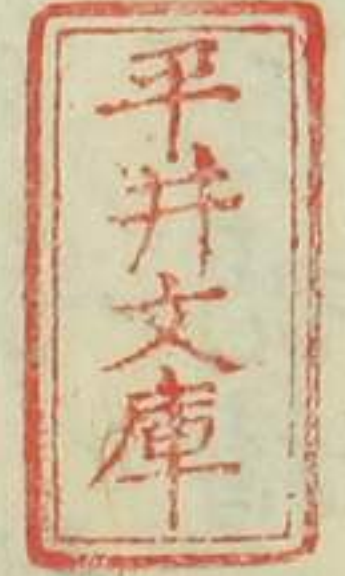 平井文庫